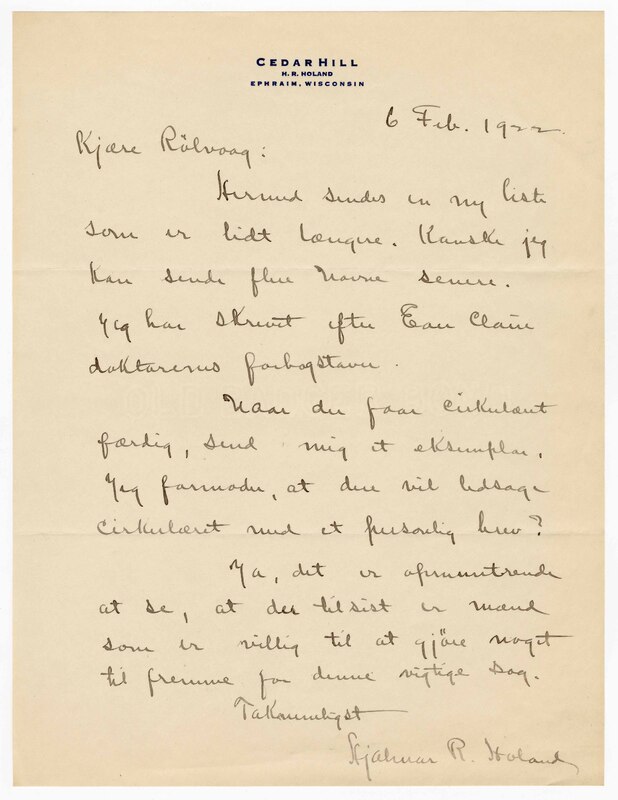 CEDAR HILL
H. R. HOLAND
EPHRAIM, WISCONSIN
6 Feb. 1922.
Kjære Rölvaag:
Hermed sendes en ny liste
som er lidt længere. Kanske jeg
kan sende flere navne senere.
Jeg har skrevet efter Eau Claire
doktorernes forbogstaver.
Naar du faar cirkulæret
færdig, send mig et eksemplar.
Jeg formoder, at du vil ledsage
cirkulæret med et personlig brev?
Ja, det er opmuntrende
at se, at der tilsist er mænd
som er villig til at gjöre noget
til fremme for denne vigtige sag.
Taknemligst
Hjalmar R. Holand